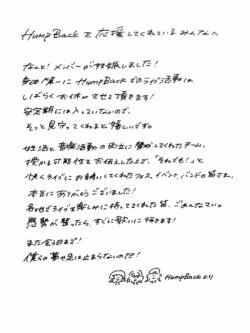 HumpBackを応援してくれているみんなへ
なんと！メンバーが妊娠しました！
身体第一にHumpBackでのライブ活動は
しばらくお休みさせて頂きます！
安定期には入っていないので、
そっと見守ってくれると嬉しいです。
妊活と音楽活動の両立に賛成してくれたチーム。
授かる可能性をお伝えした上で、「それでも！」と
快くライブにお誘いしてくれたフェス、イベント、バンドの皆さま。
本当にありがとうございました！
各地でライブを楽しみに待っててくれた皆、ごめんなさい。
態勢が整ったら、すぐに歌いに行きます！
また会う日まで！
僕らの夢や足は止まらないのだ！
HumpBackより